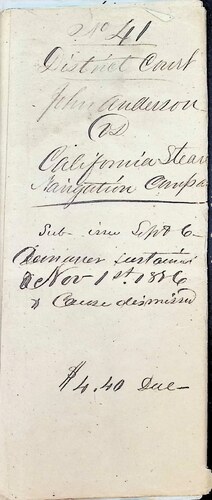 No 41
District Court
John Anderson
vs
California Steam
Navigation Compa
Sub issu Sept 6
Demurrer sustained
Nov 1st
& Cause dismissed
$4.40 Due